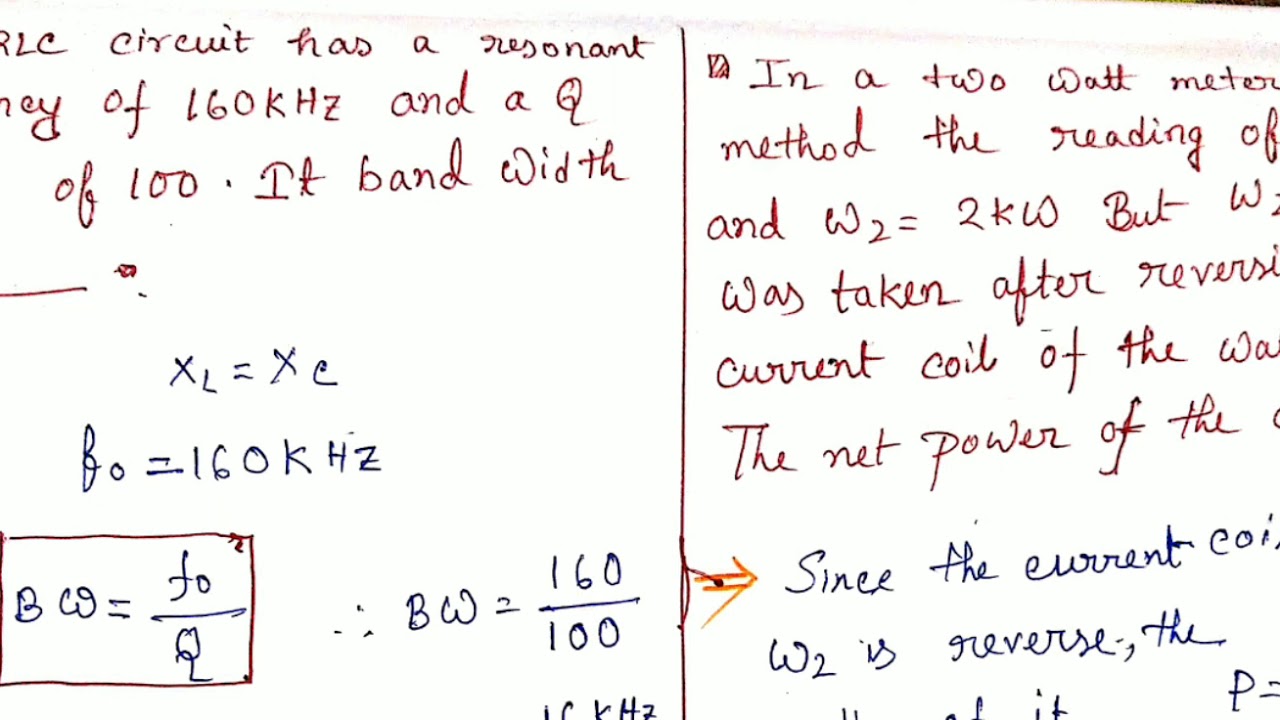 RLC circuit has a resonant
ncy of 160KHz and a Q
of 100. It band width
XL = XC
fo = 160KHZ
BW = fo/Q ∴ BW = 160/100
KHz
In a two watt meter
method the reading of
and W2 = 2kW But W2
was taken after reversi
current coil of the wa
The net power of the
Since the current coi
W2 is reverse, the
of it P=